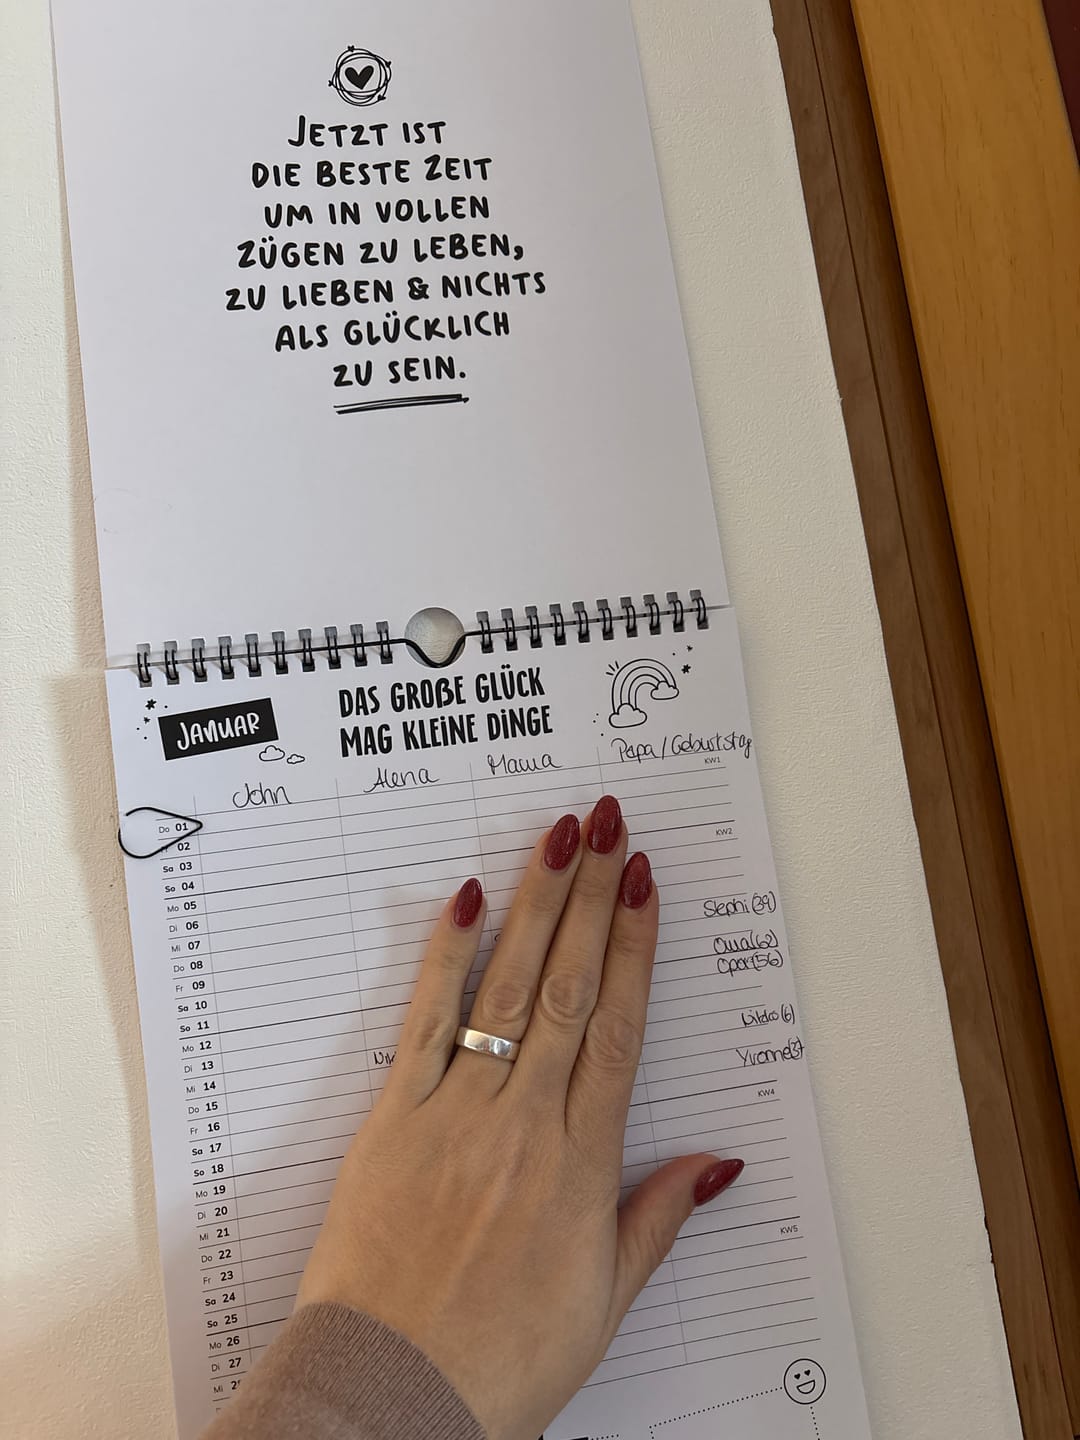 JETZT IST
DIE BESTE ZEIT
UM IN VOLLEN
ZÜGEN ZU LEBEN,
ZU LIEBEN & NICHTS
ALS GLÜCKLICH
ZU SEIN.
JANUAR
DAS GROßE GLÜCK
MAG KLEINE DINGE
John Alena Mama Papa/Geburtstag
KW1
Do 01
02
KW2
Sa 03
So 04
Mo 05
Di 06
Stephi (39)
Mi 07
Do 08
Oma (62)
Fr 09
Opa (56)
Sa 10
So 11
Mo 12
Di 13
Mi 14
Yvonne
Do 15
Fr 16
KW4
Sa 17
So 18
Mo 19
Di 20
Mi 21
Do 22
Fr 23
KW5
Sa 24
So 25
Mo 26
Di 27
Mi